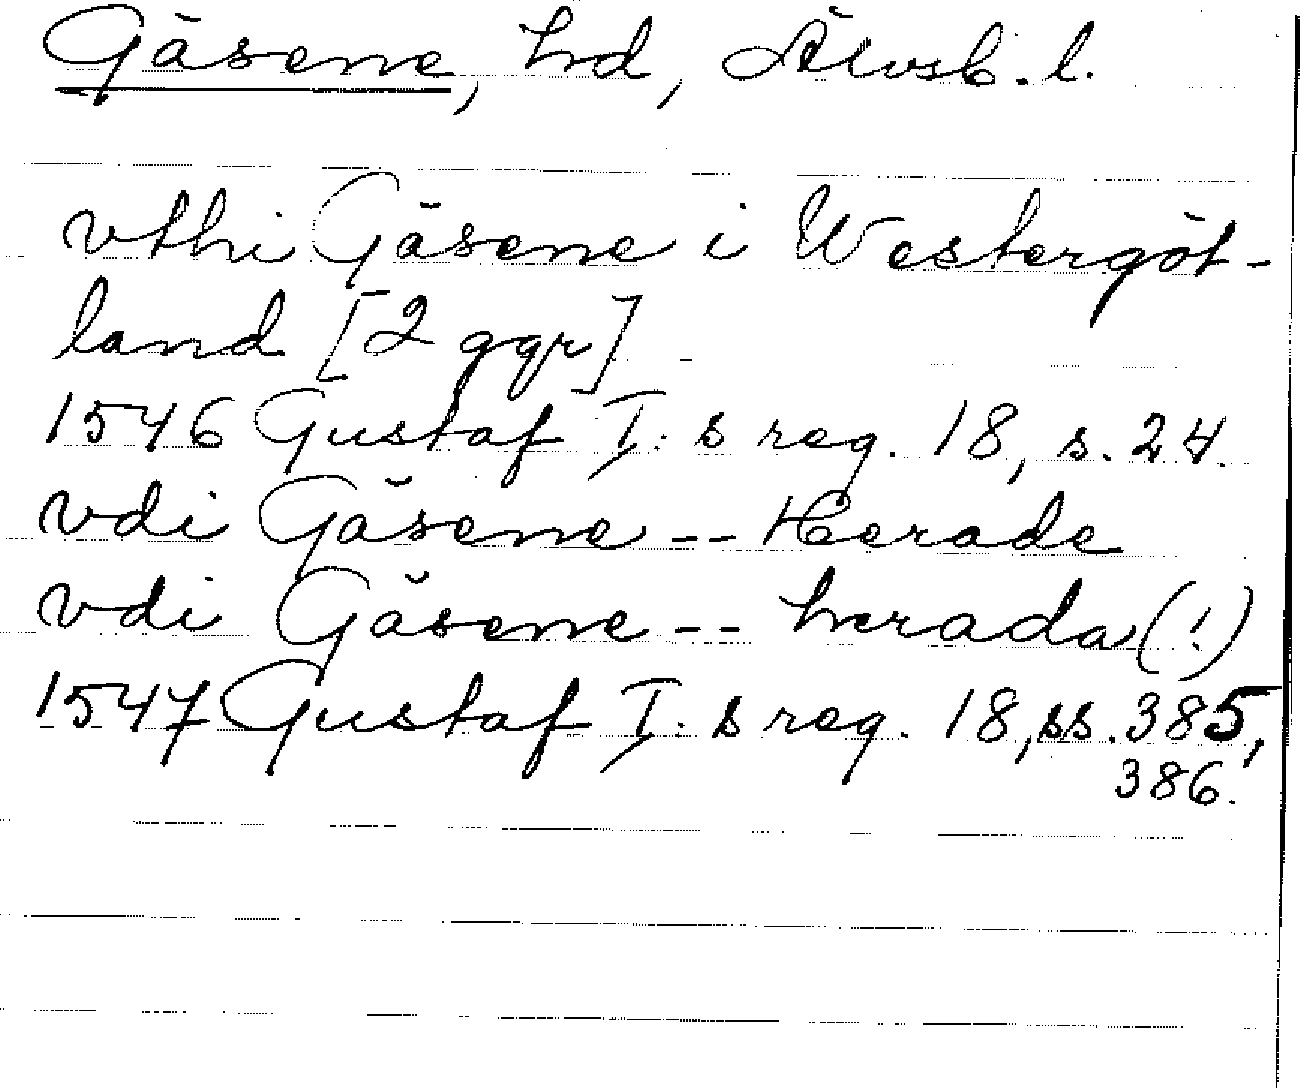 Gäsene, hd, Älvsb. l.
vthi Gäsene i Westergöt-
land [2 ggr]
1546 Gustaf I:s reg. 18, s. 24.
vdi Gäsene -- Herade
vdi Gäsene -- herada (!)
1547 Gustaf I:s reg. 18, ss. 385,
386.